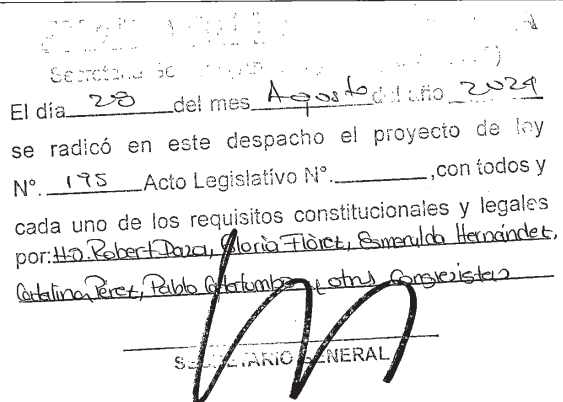 El día 28 del mes Agosto del año 2024
se radicó en este despacho el proyecto de ley
N°. 195 Acto Legislativo N°. ,con todos y
cada uno de los requisitos constitucionales y legales
por: H.D. Robert Daza, Gloria Flórez, Esmeralda Hernández,
Catalina Pérez, Pablo Catatumbo y otros Congresistas
SECRETARIO GENERAL